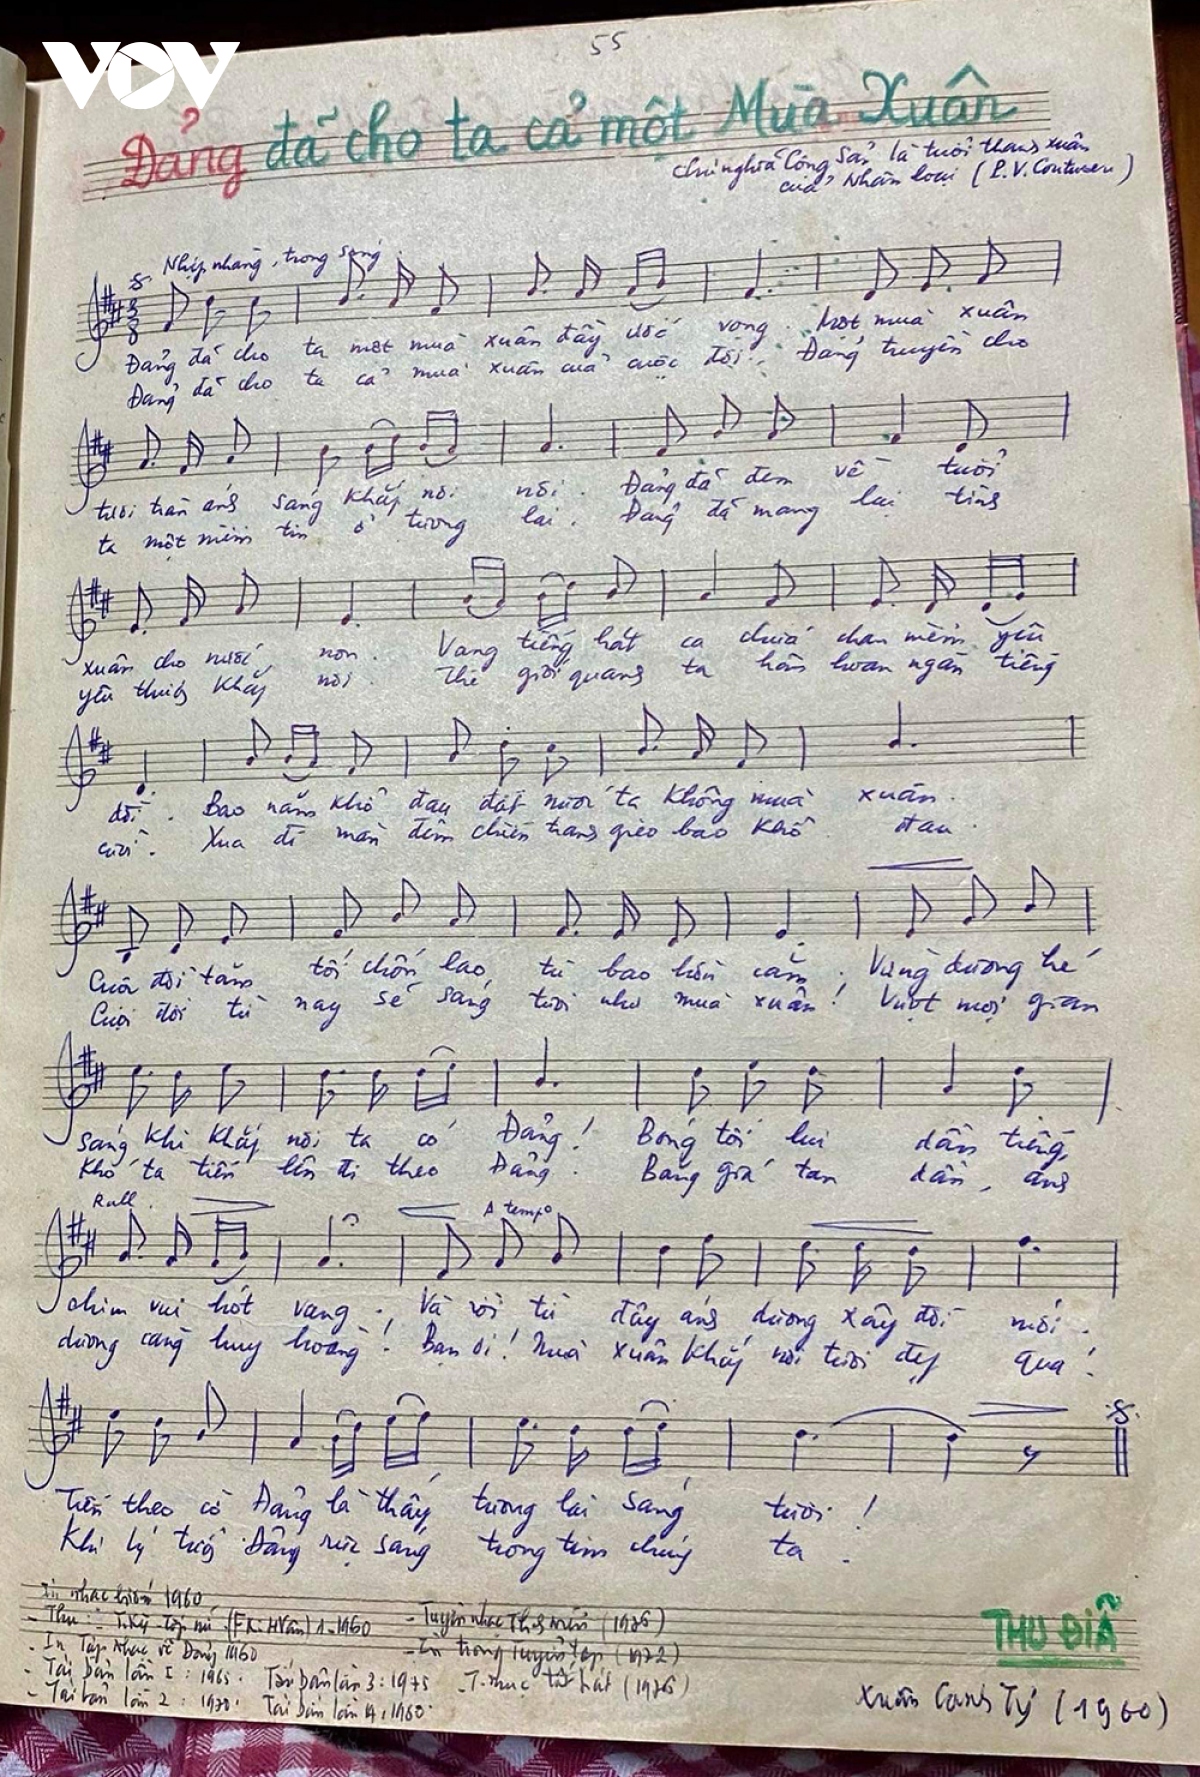 VOV
55
Đảng đã cho ta cả một Mùa Xuân
Chủ nghĩa Cộng Sản là tuổi thanh xuân
của Nhân loại (P.V.Couturier)
Nhịp nhàng, trong sáng
Đảng đã cho ta một mùa xuân đầy ước vọng. Một mùa xuân
Đảng đã cho ta cả mùa xuân của cuộc đời. Đảng truyền cho
tươi tràn ánh sáng khắp nơi nơi. Đảng đã đem về tuổi
ta một niềm tin ở tương lai. Đảng đã mang lại tình
xuân cho nước non. Vang tiếng hát ca chứa chan niềm yêu
yêu thương khắp nơi. Thế giới quanh ta hân hoan ngàn tiếng
đời. Bao năm khổ đau đất nước ta không mùa xuân.
cười. Xua đi màn đêm chiến tranh gieo bao khổ đau.
Cuộc đời tăm tối chốn lao tù bao hờn căm. Vầng dương hé
Cuộc đời từ nay sẽ sáng tươi như mùa xuân! Vượt mọi gian
sáng khi khắp nơi ta có Đảng! Bóng tối lui dần tiếng
khó ta tiến lên đi theo Đảng. Băng giá tan dần, ánh
Rall.
A tempo
chim vui hót vang. Và rồi từ đây ánh dương xây đời mới.
dương càng huy hoàng! Bạn ơi! Mùa xuân khắp nơi tươi đẹp quá!
Tiến theo cờ Đảng là thấy tương lai sáng tươi!
Khi lý tưởng Đảng rực sáng trong tim chúng ta.
1960
1-1960
- Tuyển nhạc (1976)
- In Tập nhạc về Đảng 1960
- In trong Tuyển tập (1972)
- Tái bản lần I: 1965. Tái bản lần 3: 1975
(1976)
- Tái bản lần 2: 1970. Tái bản lần 4: 1960.
THU ĐIẾU
Xuân Canh Tý (1960)